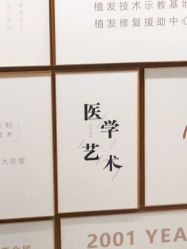 植发技术示教基地
植发修复援助中心
医学
艺术
大会堂
2001 YEA